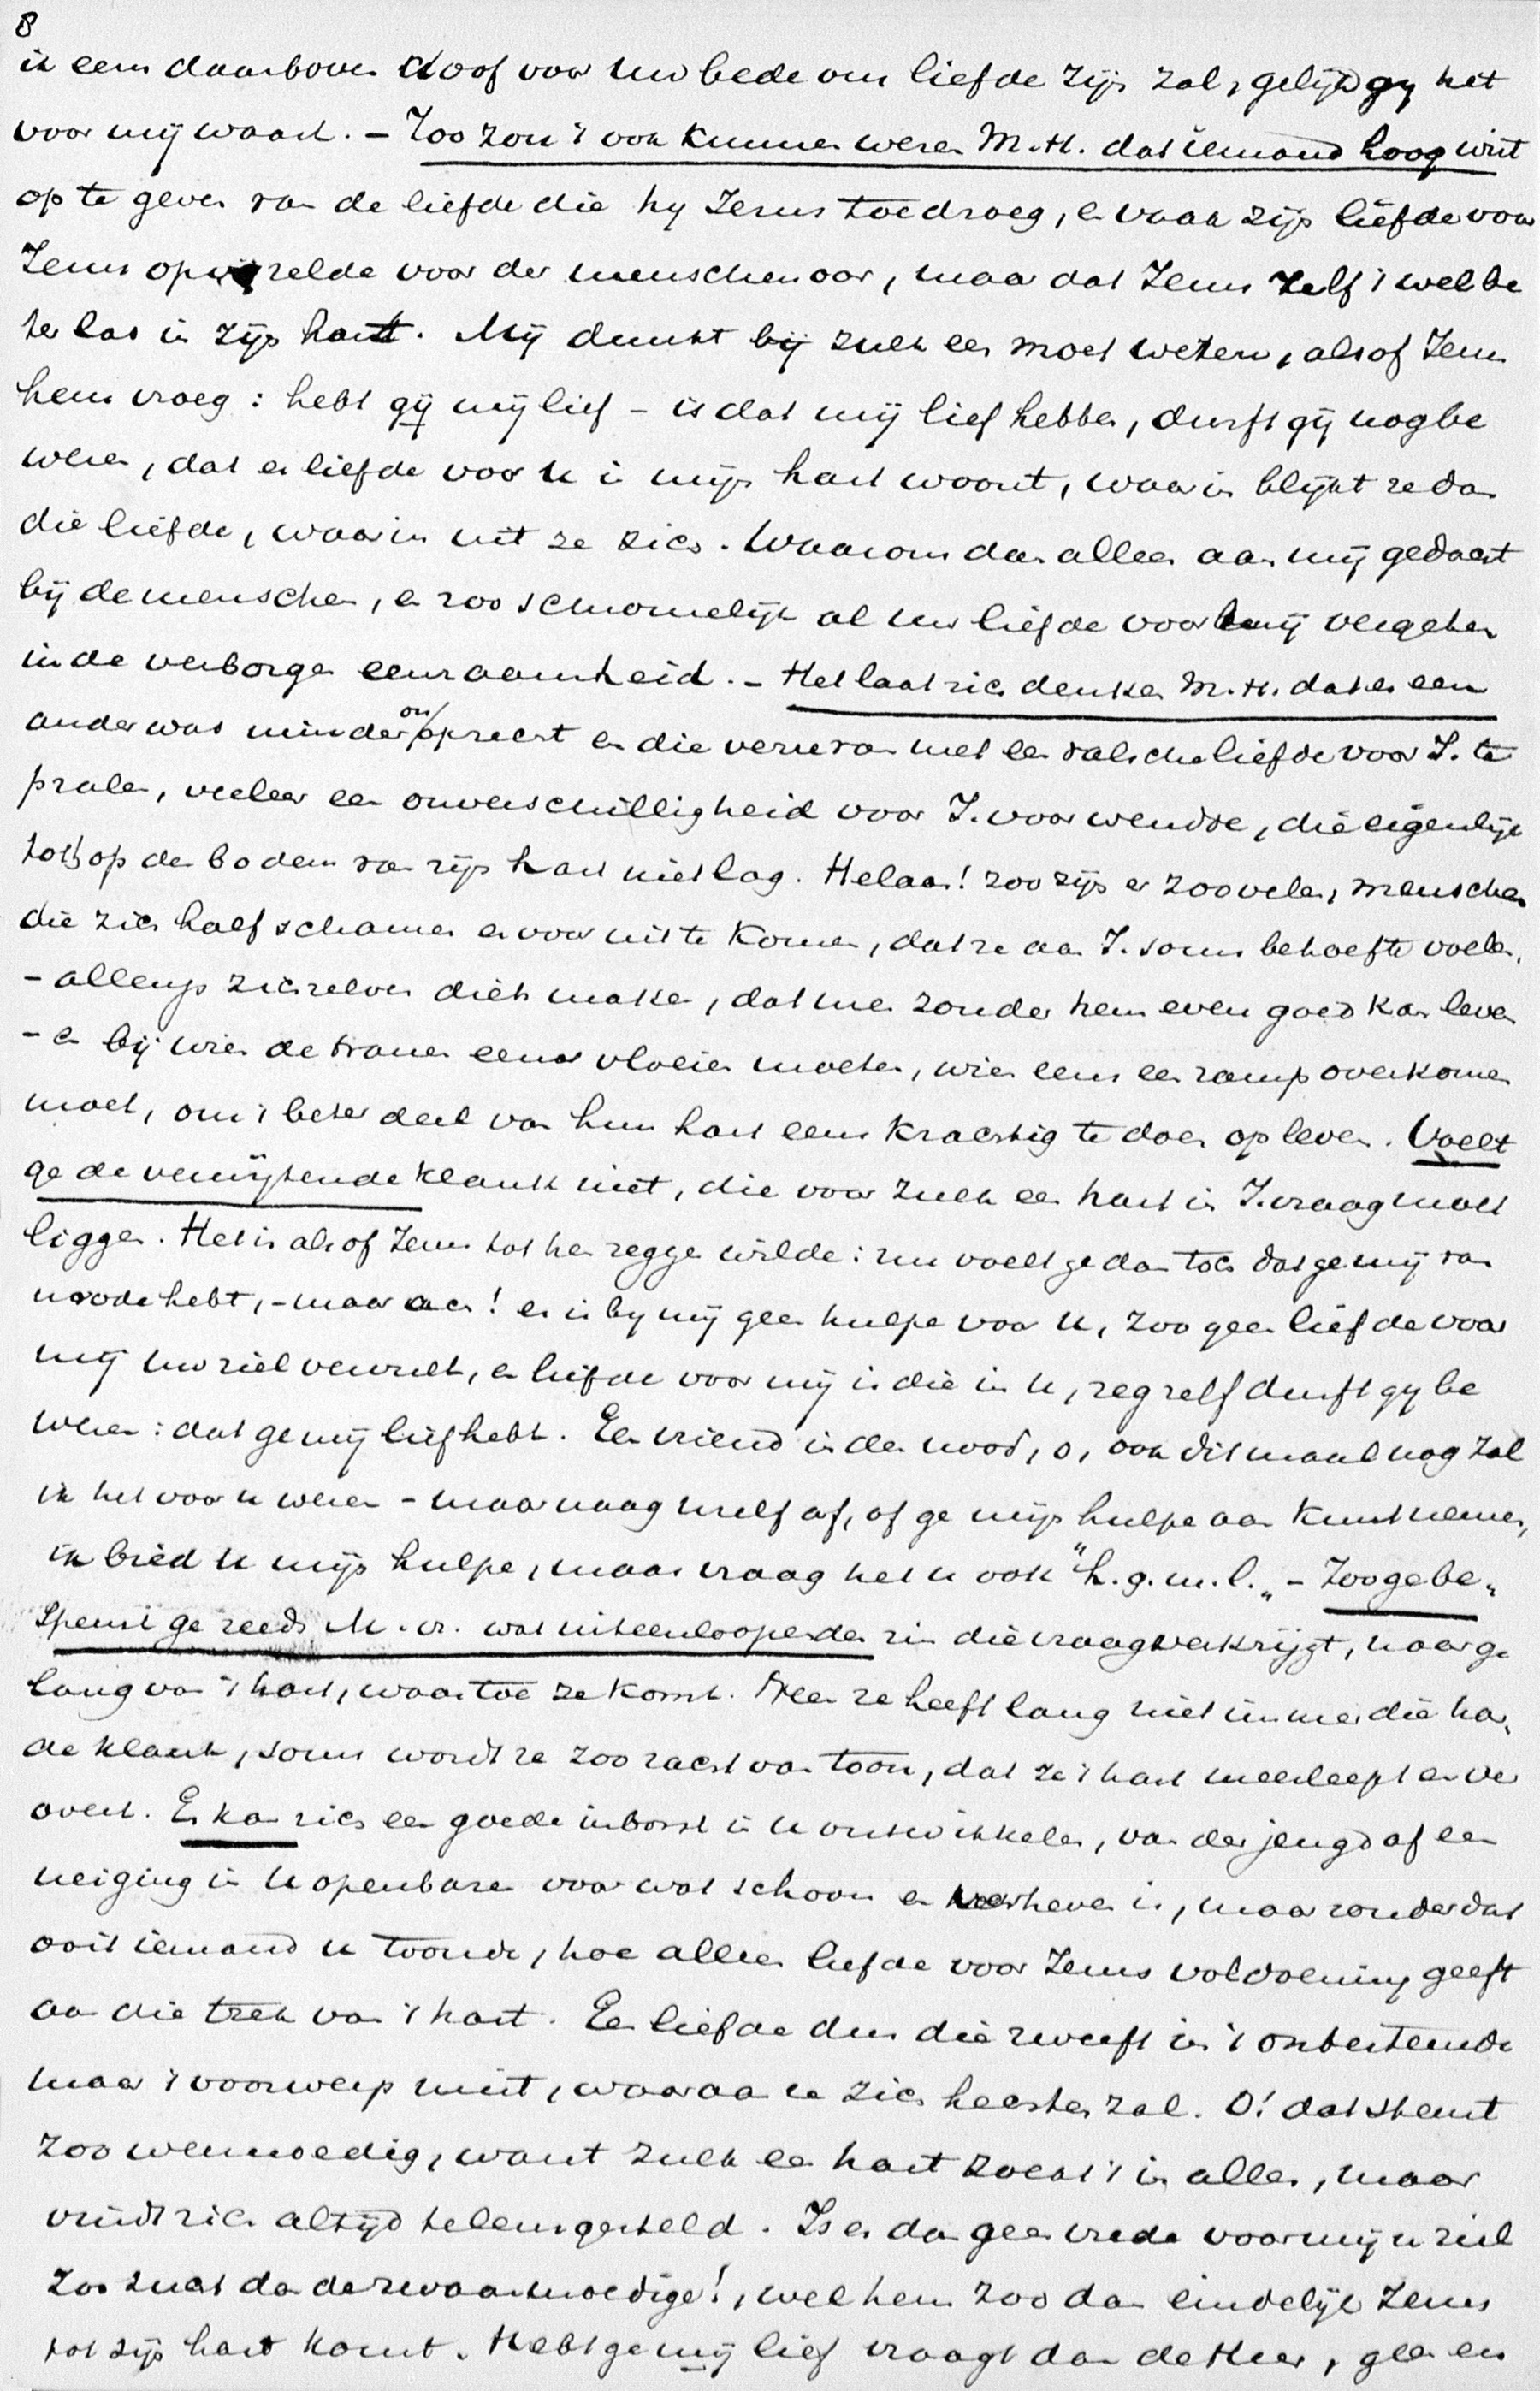 8
ik eens daarboven doof voor uw bede om liefde zijn zal, gelijk gy het
voor mij waart. – Zoo zou 't ook kunnen wezen M.H. dat iemand hoog wist
op te geven van de liefde die hy Jezus toedroeg, en vaak zijn liefde voor
Jezus opvijzelde voor der menschen oor, maar dat Jezus zelf 't wel be
ter las in zijn hart. Mij dunkt bij zulk een moet wezen, alsof Jezus
hem vroeg: hebt gij mij lief – is dat mij lief hebben, durft gij nog be
weren, dat er liefde voor u in mijn hart woont, waarin blijkt ze dan
die liefde, waarin uit ze zich. Waarom dan alleen aan mij gedacht
bij de menschen, en zoo schromelijk al uw liefde voor mij vergeten
in de verborgen eenzaamheid. – Het laat zich denken M.H. dat er een
ander was minder on/oprecht en die verre van met een valsche liefde voor J. te
pralen, veeleer een onverschilligheid voor J. voorwendde, die eigenlijk
toch op den bodem van zijn hart niet lag. Helaas! zoo zijn er zoovelen, menschen
die zich half schamen er voor uit te komen, dat ze aan J. soms behoefte voelen,
– allengs zichzelven diets maken, dat men zonder hem even goed kan leven
– en bij wien de tranen eens vloeien moeten, wien eens een ramp overkomen
moet, om 't beter deel van hun hart eens krachtig te doen opleven. Voelt
ge de verwijtende klank niet, die voor zulk een hart in J. vraag moet
liggen. Het is alsof Jezus tot hen zeggen wilde: nu voelt ge dan toch dat ge mij van
noode hebt, – maar ach! er is by mij geen hulpe voor u, zoo geen liefde voor
mij uw ziel vervult, en liefde voor mij is die in u, zeg zelf durft gy be
weren: dat ge mij lief hebt. Een vriend in den nood, o, ook ditmaal nog zal
ik het voor u wezen – maar vraag uzelf af, of ge mijn hulpe aan kunt nemen,
ik bied u mijn hulpe, maar vraag het u ook "h.g.m.l." – Zoo ge be"
speurt ge reeds M.vr. wat uiteenloopenden zin die vraag verkrijgt, naar ge
lang van 't hart, waartoe ze komt. Neen ze heeft lang niet immer die har"
de klank, soms wordt ze zoo zacht van toon, dat ze 't hart meesleept en ver
overt. Er kan zich een goede inborst in u ontwikkelen, van der jeugd af een
neiging in u openbaren voor wat schoon en verheven is, maar zonder dat
ooit iemand u toonde, hoe alleen liefde voor Jezus voldoening geeft
aan die trek van 't hart. Een liefde dus die zweeft in 't onbestemde
maar 't voorwerp mist, waaraan ze zich hechten zal. O! dat stemt
zoo weemoedig, want zulk een hart zoekt 't in alles, maar
vindt zich altijd teleurgesteld. Is er dan geen vrede voor mijn ziel
zoo zucht dan de zwaarmoedige!, wel hem zoo dan eindelijk Jezus
tot zijn hart komt. Hebt ge mij lief vraagt dan de Heer, geen en